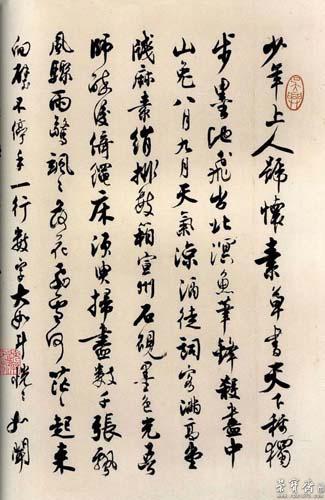 少年上人號懷素草書天下稱獨
步墨池飛出北溟魚筆鋒殺盡中
山兔八月九月天氣涼酒徒詞客滿高堂
牋麻素絹排數箱宣州石硯墨色光吾
師醉後倚繩床須臾掃盡數千張飄
風驟雨驚颯々落花飛雪何茫々起來
向壁不停手一行數字大如斗怳々如聞